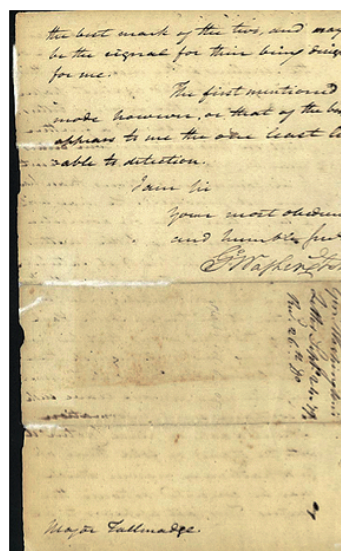 the best mark of the two, and may
be the signal for their being
for me.
The first mentioned
mode however, or that of the
appears to me the one least
able to detection.
I am Sir
Your most
and humble
G Washington
Gen Washington's
26th 80
Major Tallmadge